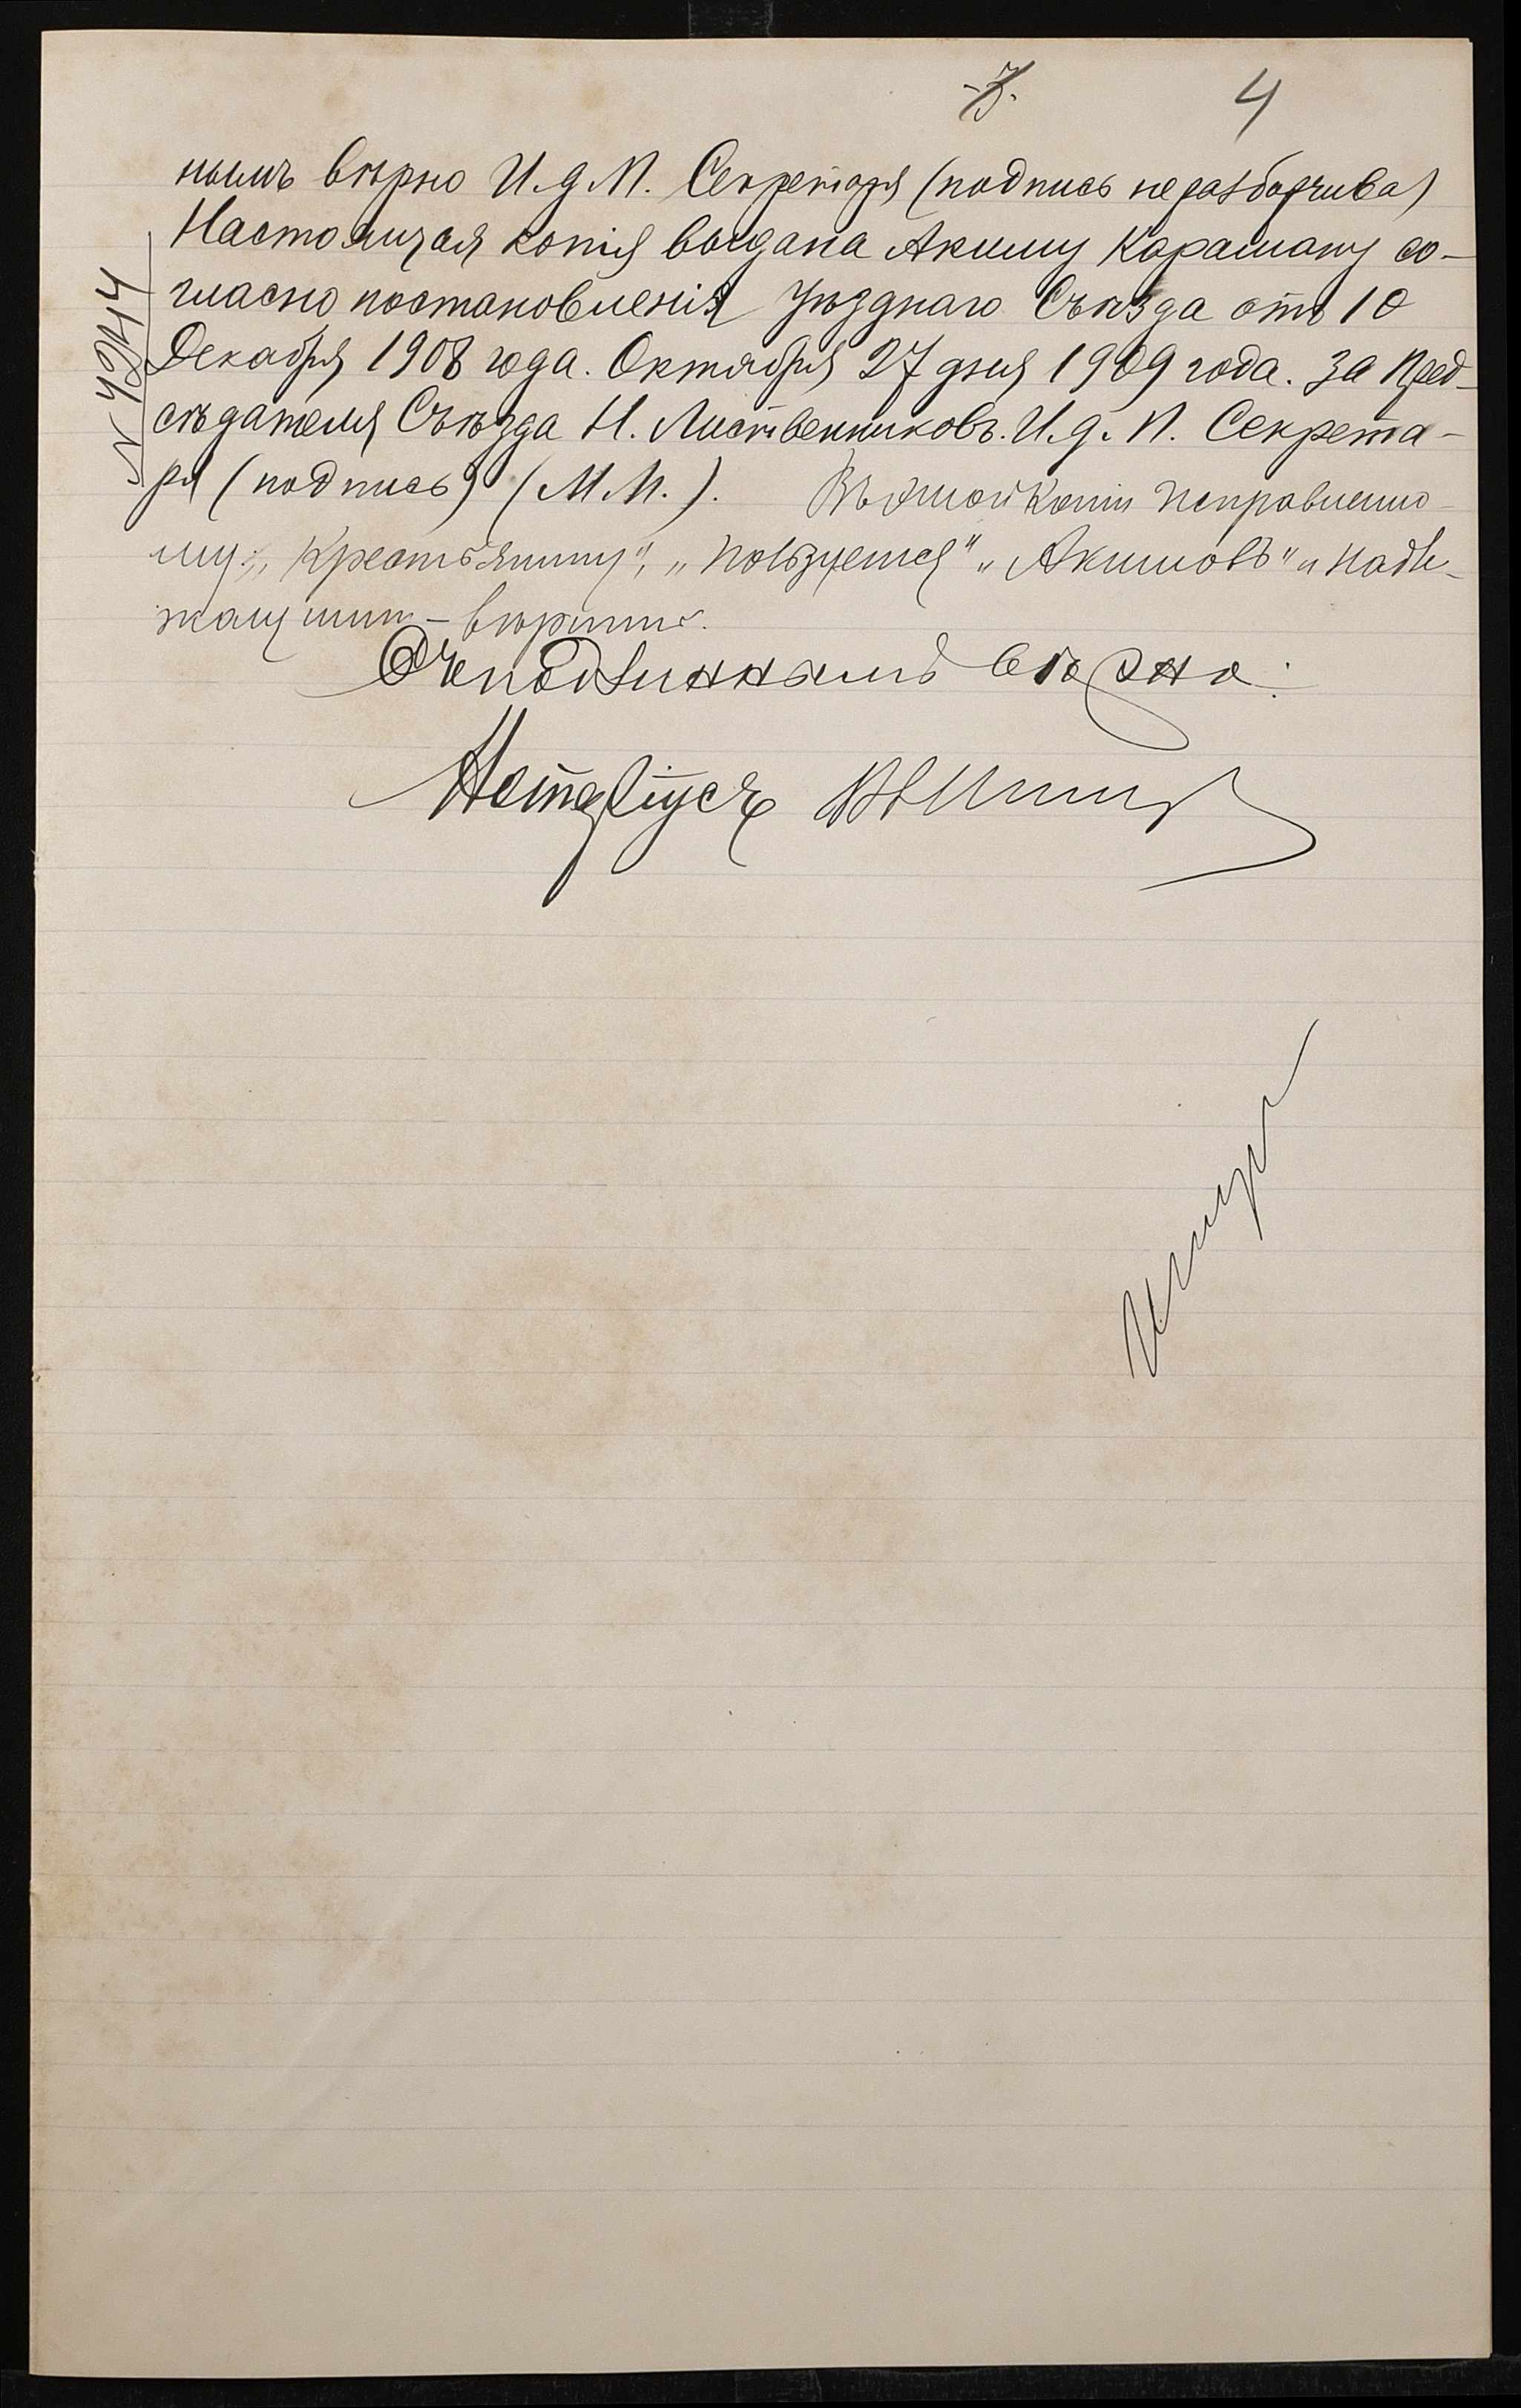 4
нымъ вѣрно И. д. П. Секретаря (подпись неразборчива)
Настоящая копія выдана Акиму Караману со-
гласно постановленія Уѣзднаго Съѣзда отъ 10
Декабря 1908 года. Октября 27 дня 1909 года. За Пред-
сѣдателя Съѣзда Н. Лиственниковъ. И. д. П. Секрета-
ря (подпись) (М. П.). Въ этой копіи исправлено
му: „Крестьянину", „пользуется" „Акимовъ" „надле-
жащими — вѣрить.
Съ подлиннымъ вѣрно:
Нотаріусъ